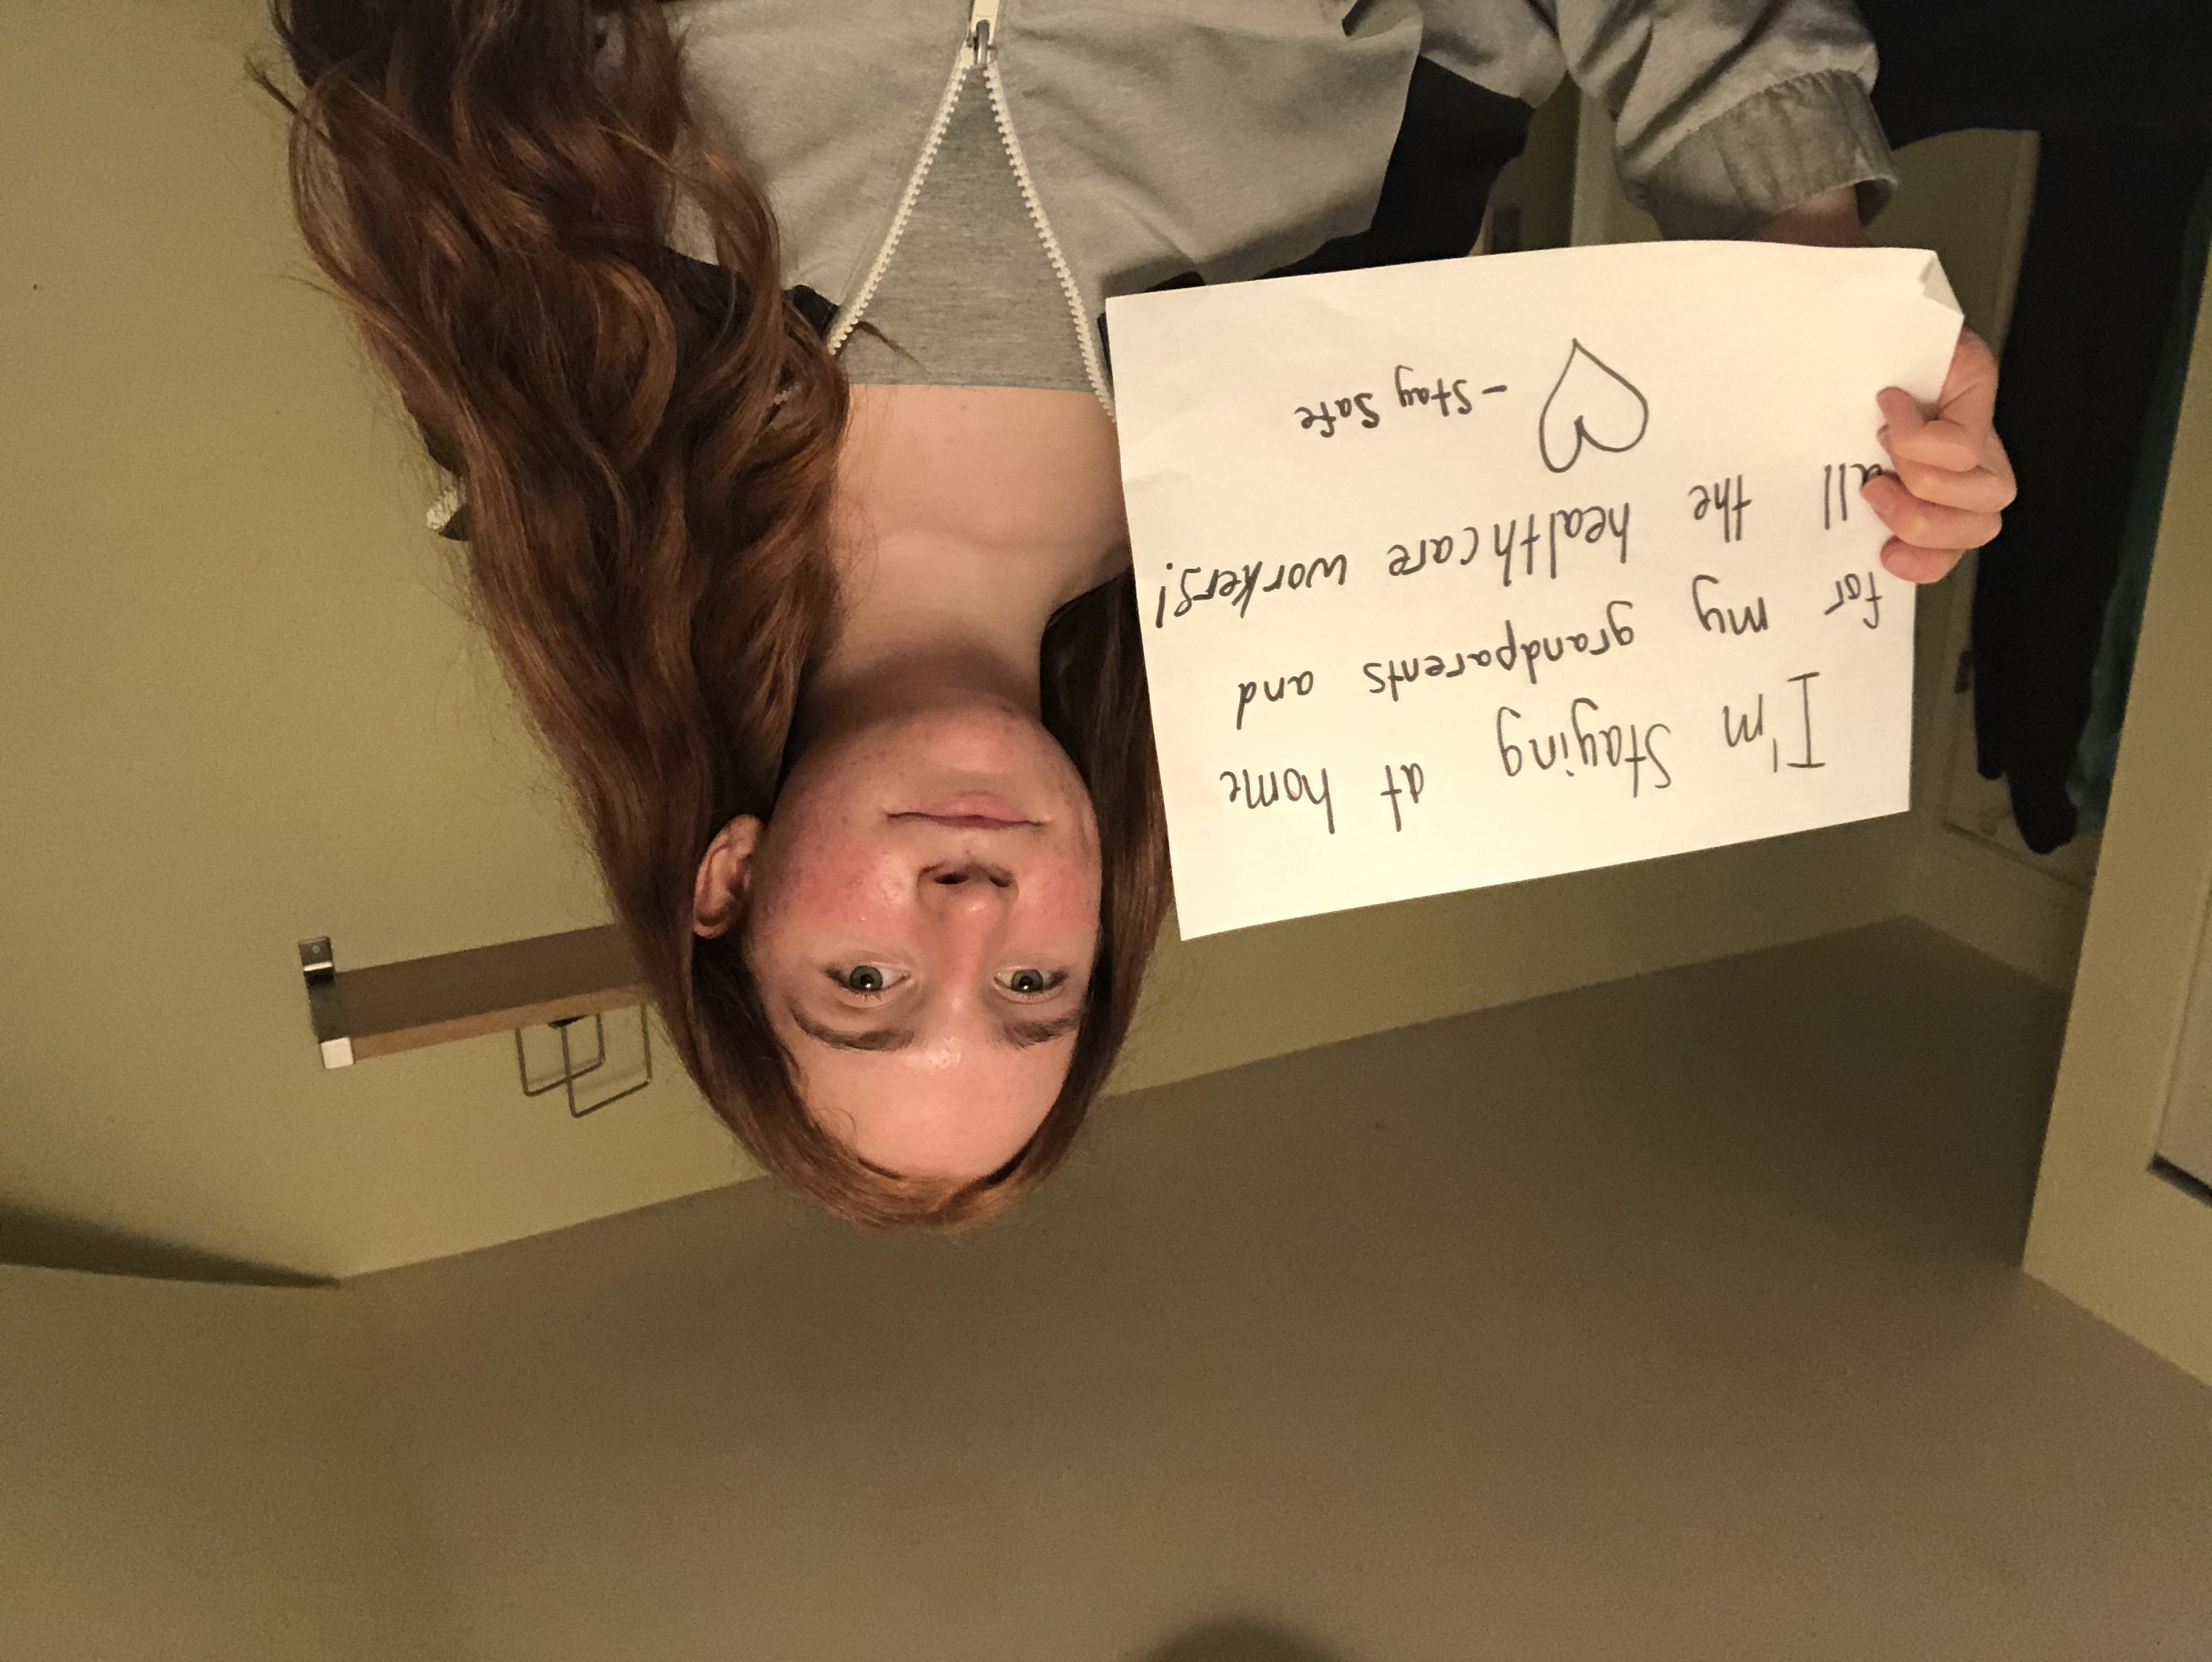 I'm Staying at home
for my grandparents and
all the healthcare workers!
- Stay Safe